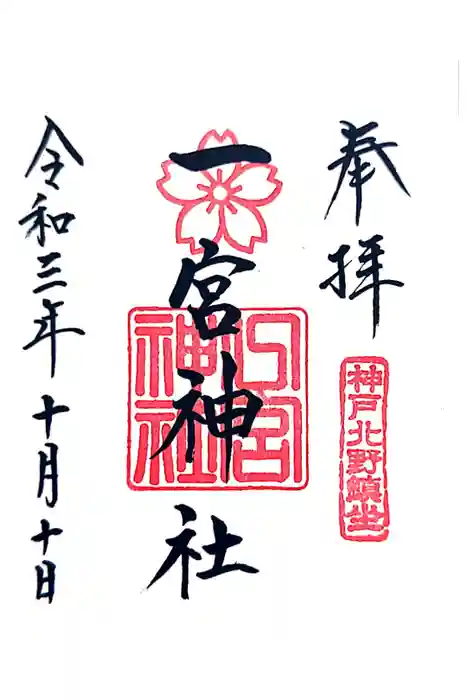 奉拝
神戸北野鎮坐
一宮神社
一宮神社
令和三年十月十日